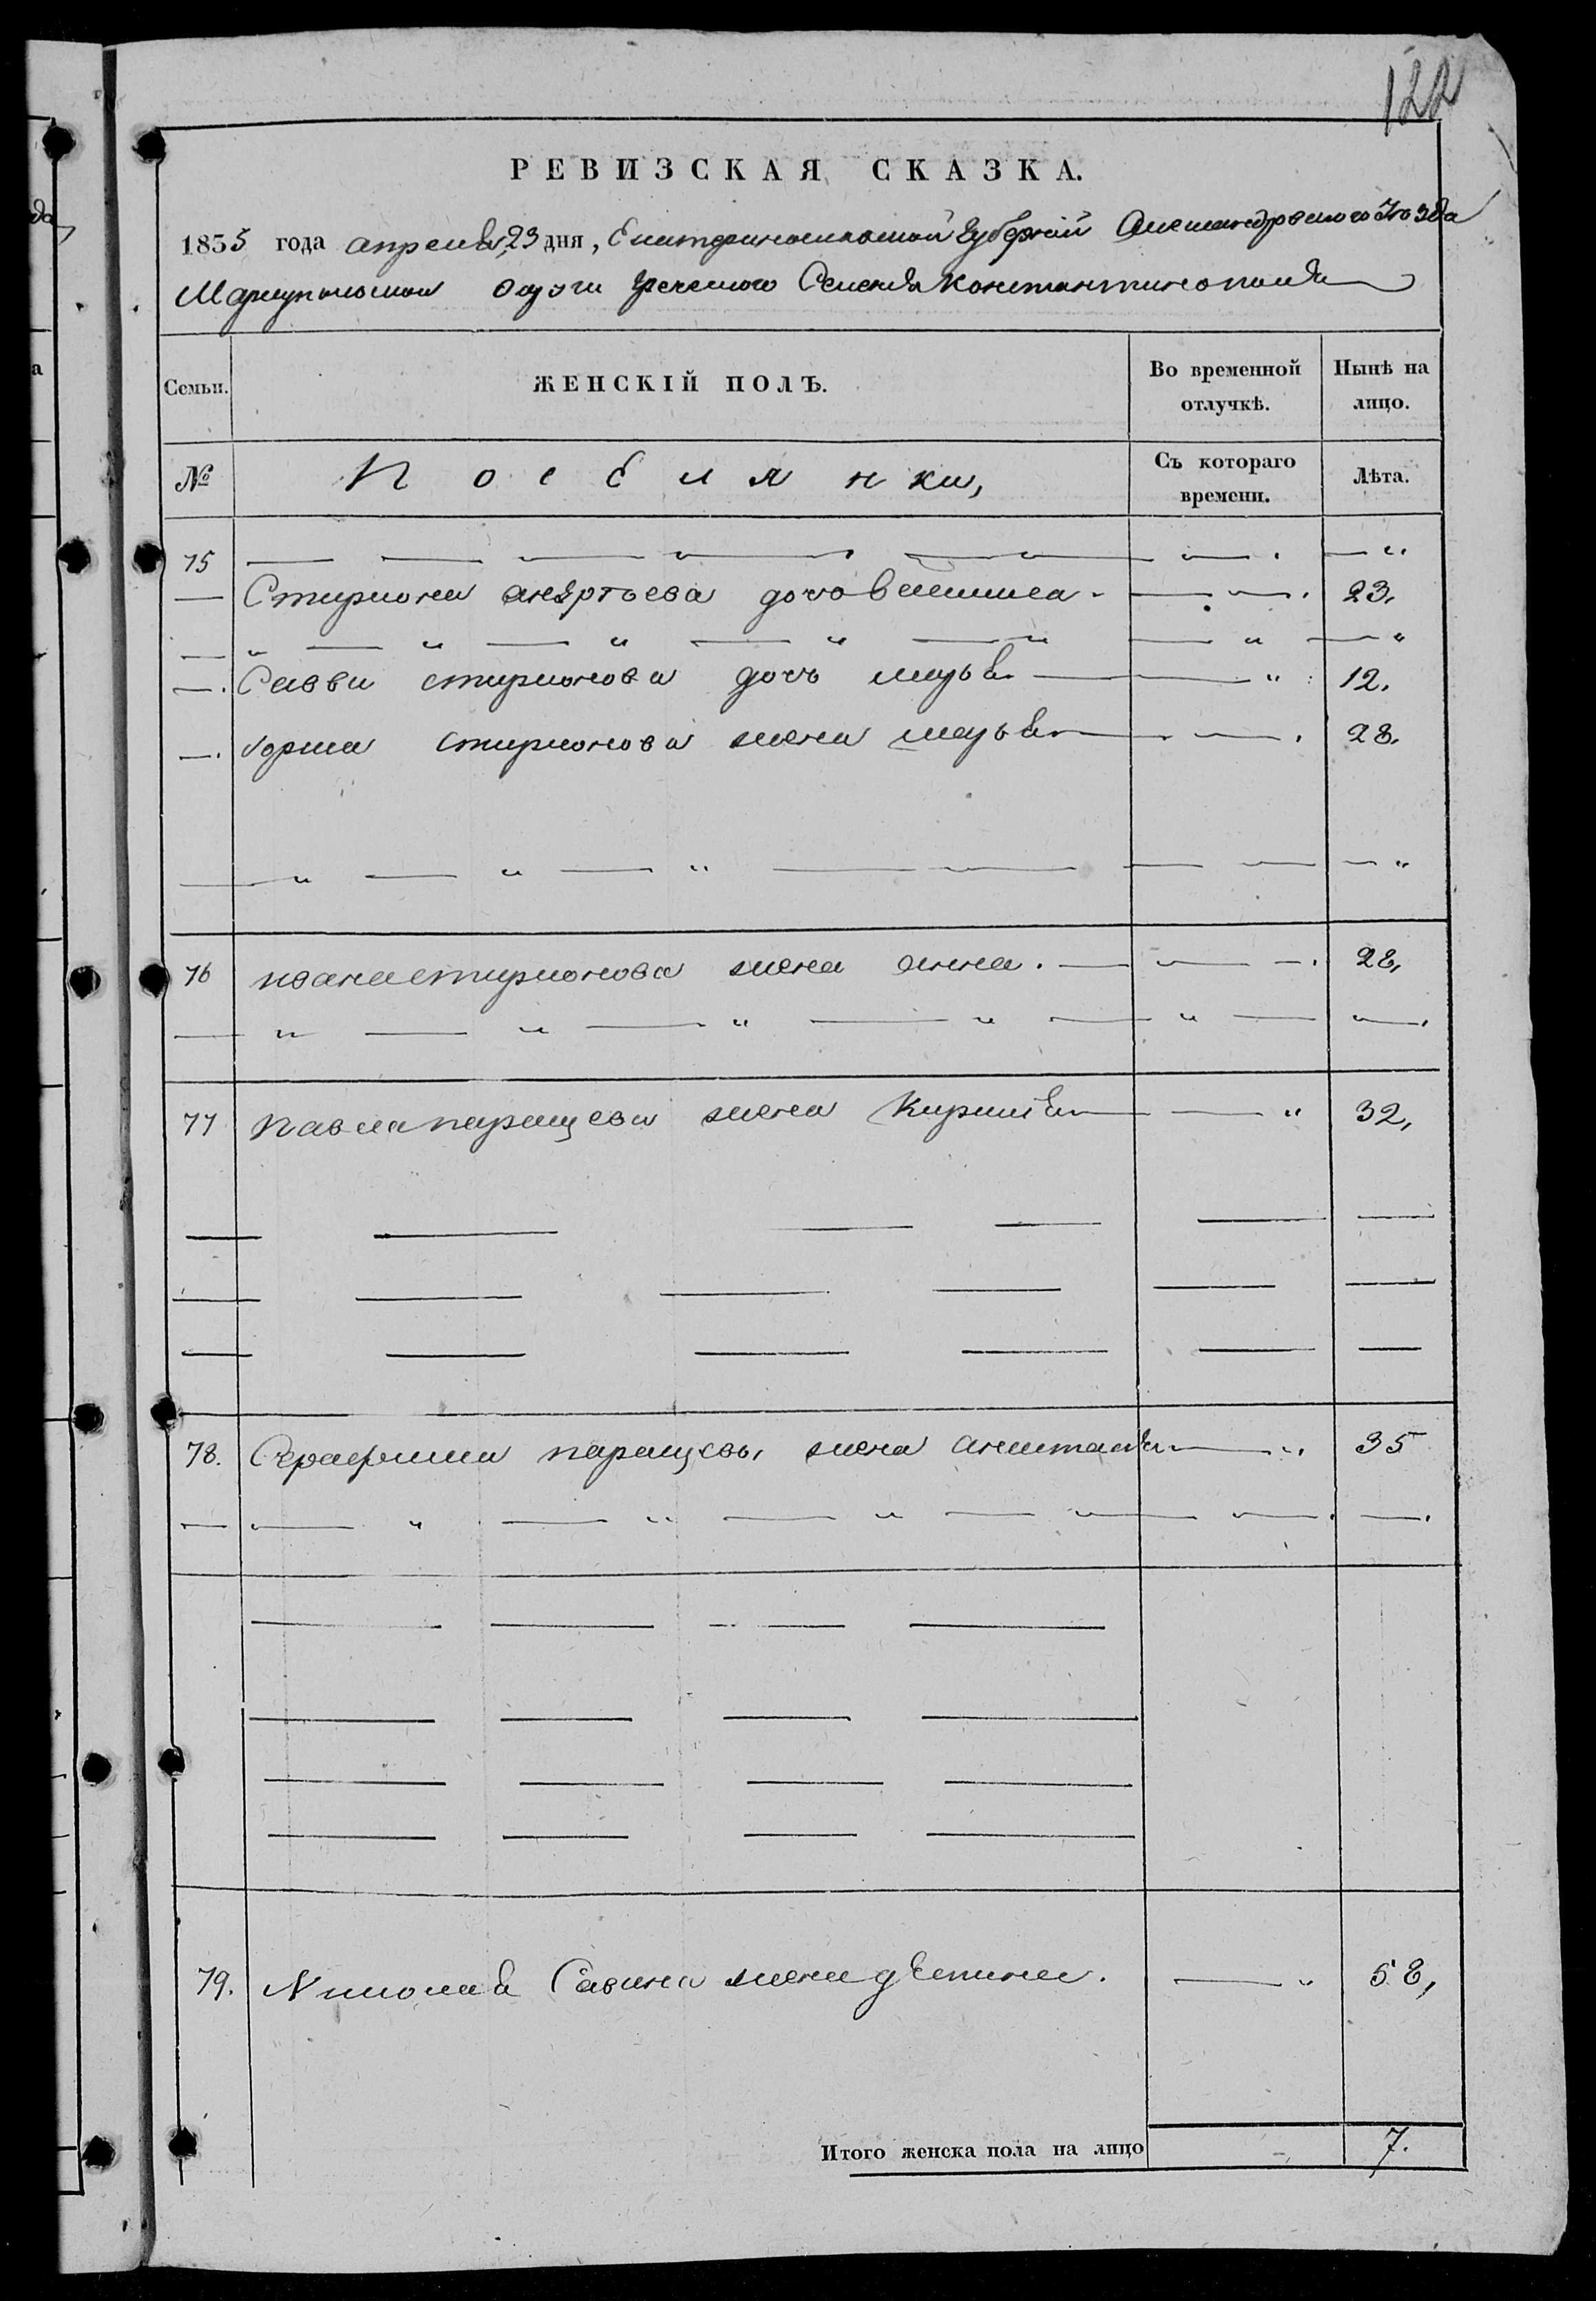 122
РЕВИЗСКАЯ СКАЗКА.
1855 года апреля 23 дня, Екатеринославской Губерній Александровского Уезда
Мариупольской округи греческого Селенія Константинополя
Семьи. ЖЕНСКІЙ ПОЛЪ. Во временной отлучкѣ. Нынѣ на лицо.
№ Поселянки, Съ котораго времени. Лѣта.
75
Стириона дочь 23.
Савви стирионова дочь 12.
стирионова жена 28.
76 ивана стирионова жена анна. 28,
77 Павла паращева жена Кириакия 32,
78. Серафима паращева жена анастасія 35
79. Николая Савина жена деспина. 58,
Итого женска пола на лицо 7.